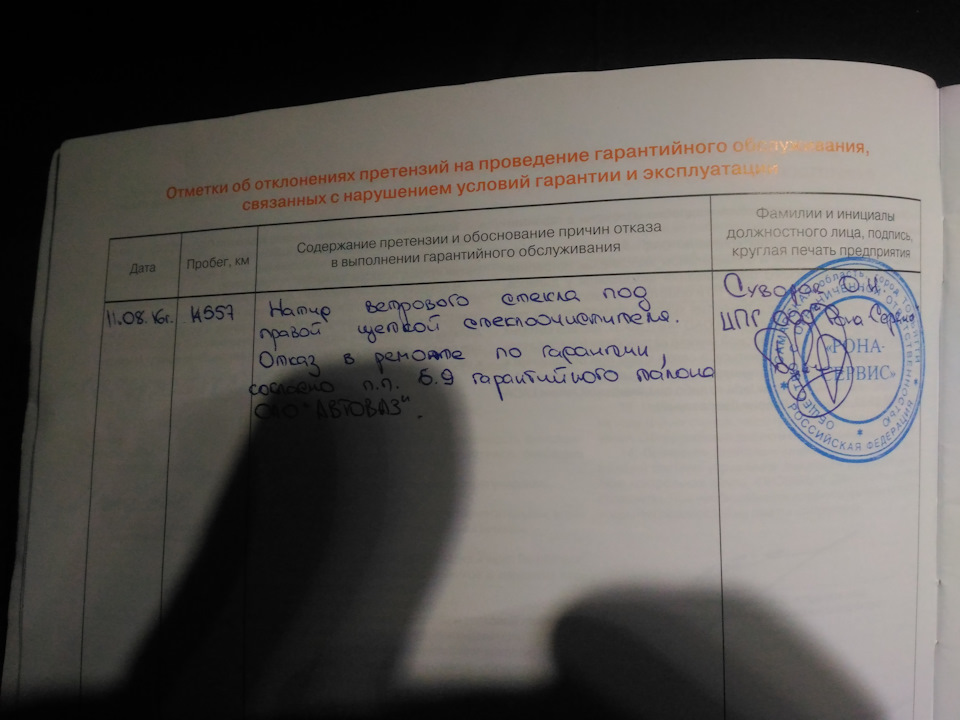 Отметки об отклонениях претензий на проведение гарантийного обслуживания,
связанных с нарушением условий гарантии и эксплуатации
Дата
Пробег, км
Содержание претензии и обоснование причин отказа
в выполнении гарантийного обслуживания
Фамилии и инициалы
должностного лица, подпись,
круглая печать предприятия
11.08.16г.
Натир ветрового стекла под
правой щеткой стеклоочистителя.
Отказ в ремонте по гарантии,
согласно п.п. 6.9 гарантийного талона
ОАО "АВТОВАЗ".
Суворов О.И.
«РОНА-
СЕРВИС»
РОССИЙСКАЯ ФЕДЕРАЦИЯ